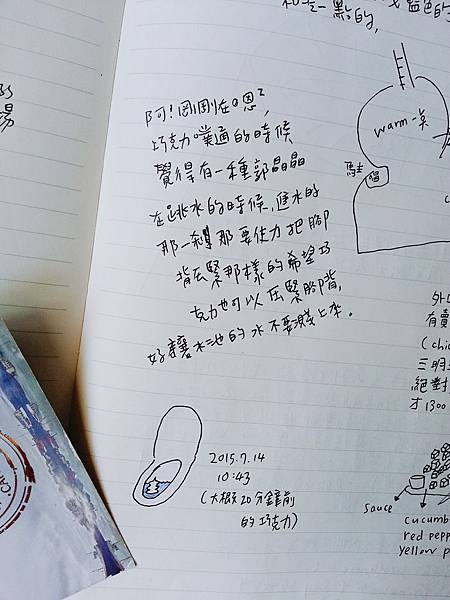 和去一點的,
藍色的
阿!剛剛在嗯嗯,
巧克力噗通的時候
覺得有一種郭晶晶
在跳水的時候,進水的
那一剎那要使力把腳
背壓緊那樣的希望巧
克力也可以压緊腳背,
好讓水池的水不要濺上來。
2015.7.14
10:43
(大概20分鐘前
的巧克力)
warm一點
有賣
(chic
三明
絕對
才1300
sauce
cucumb
red pepp
yellow p